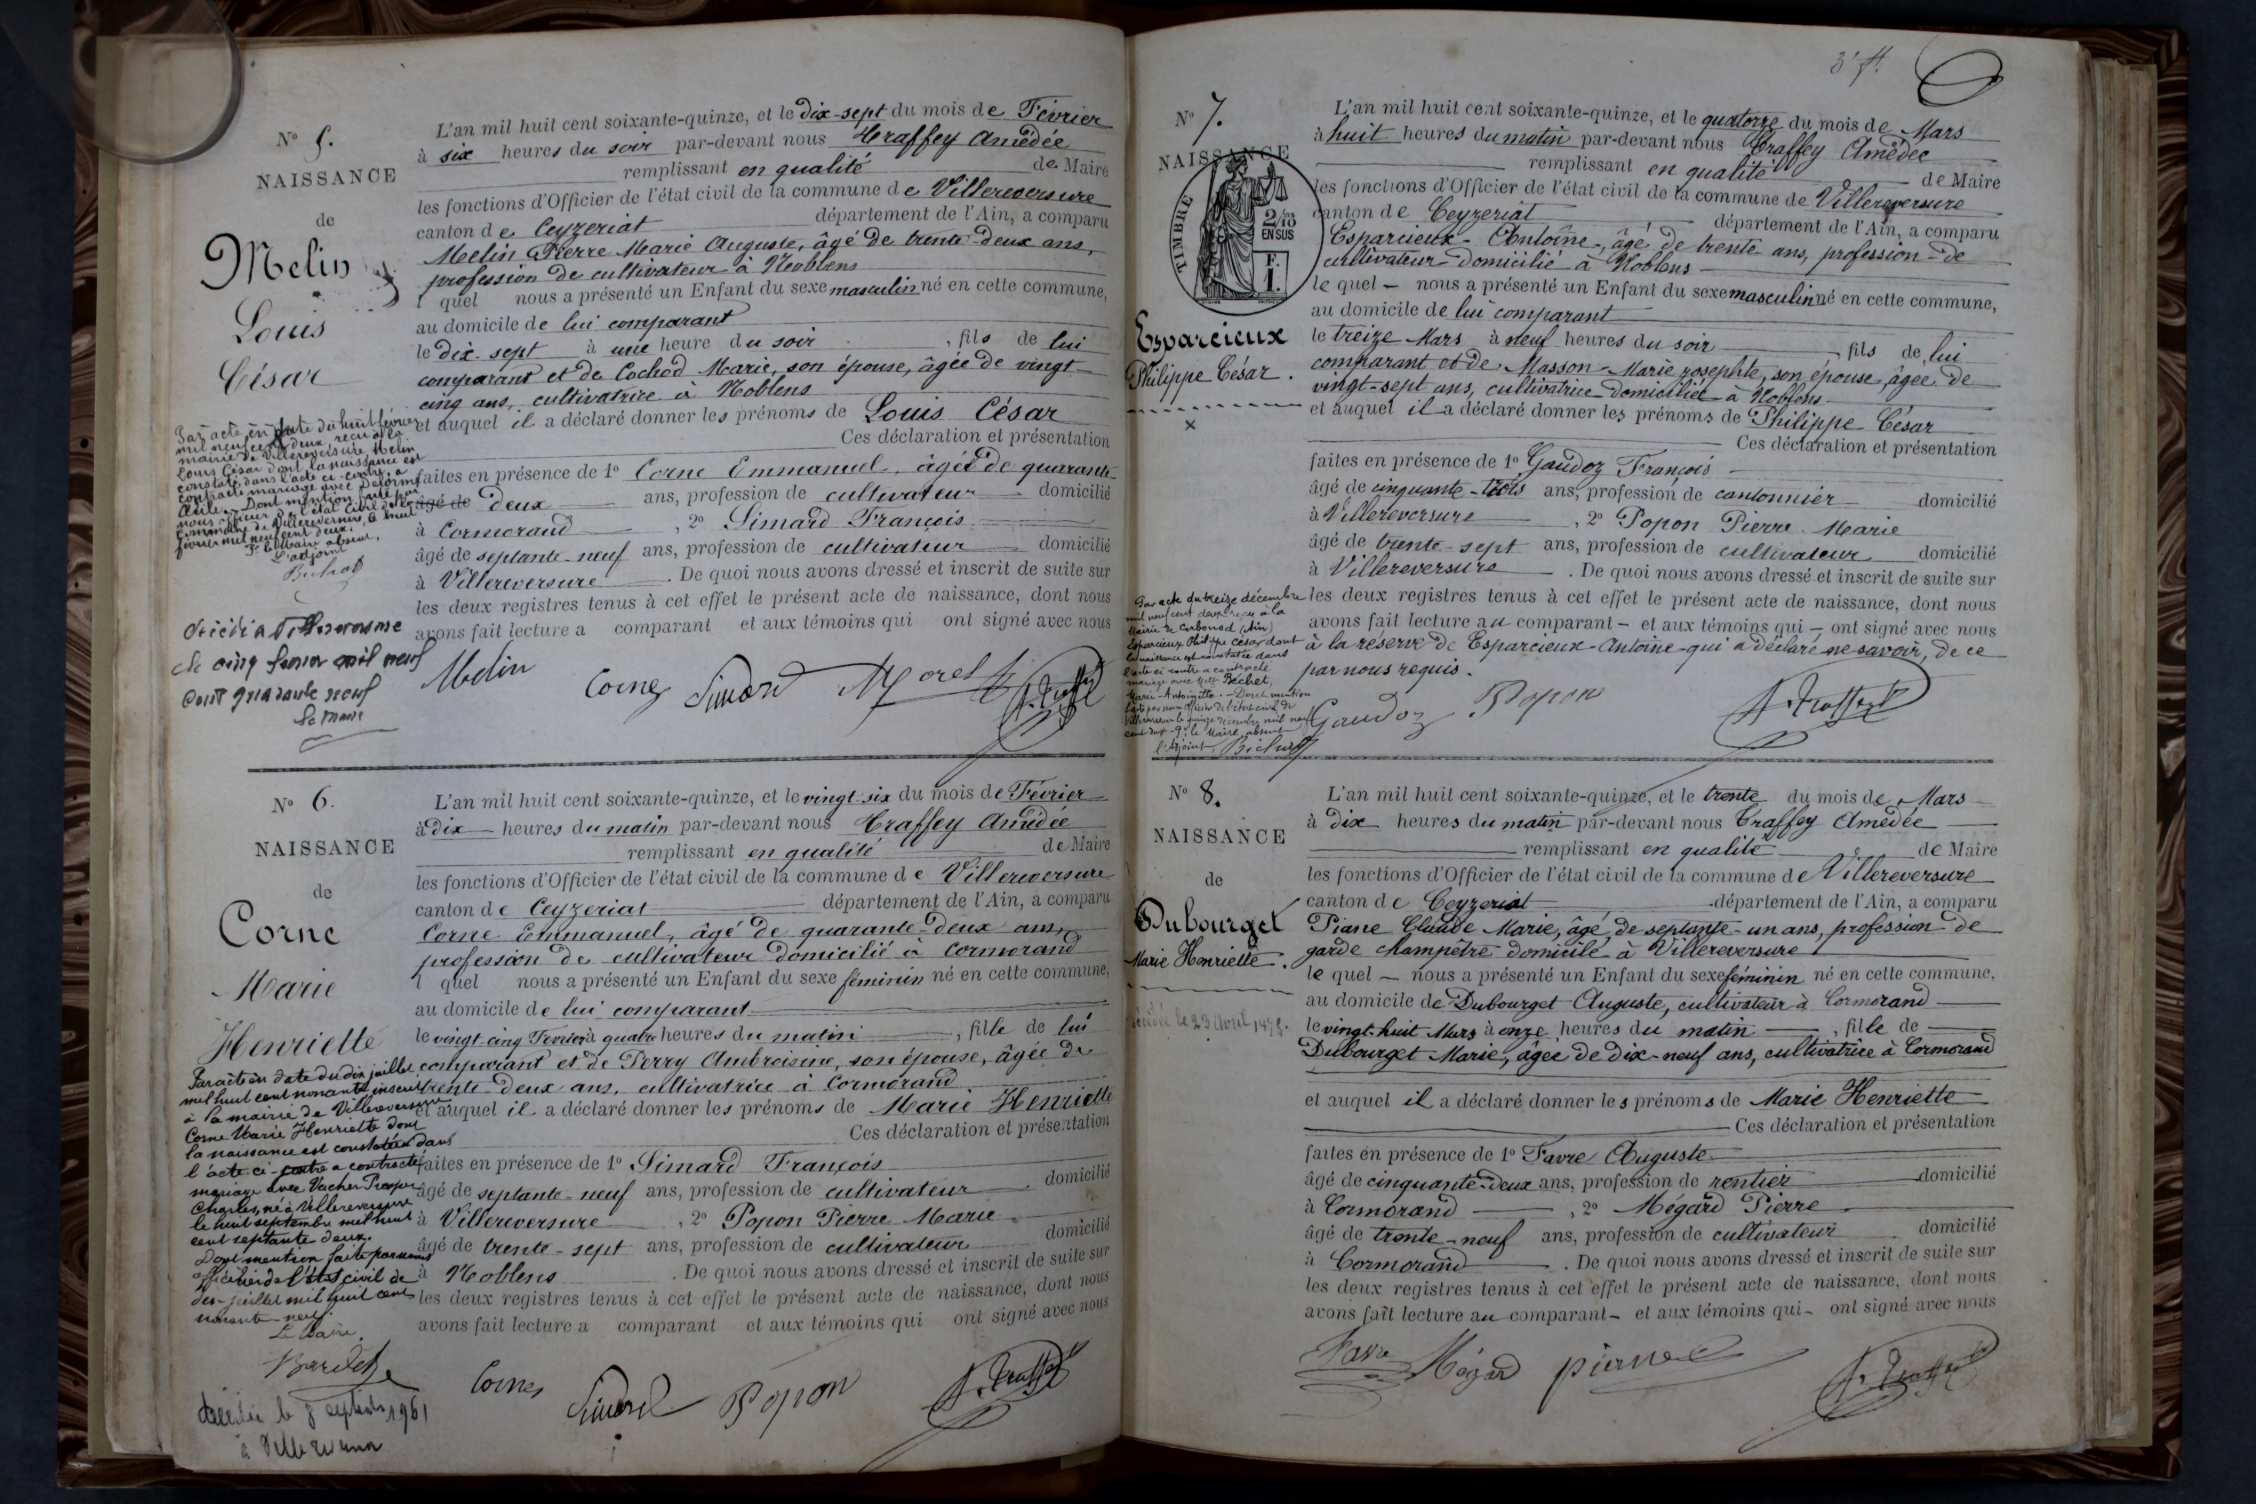 N° 5.
NAISSANCE
de
Melin
Louis
César
L'an mil huit cent soixante-quinze, et le dix-sept du mois de Février
à six heures du soir par-devant nous Traffey Amédée
remplissant en qualité de Maire
les fonctions d'Officier de l'état civil de la commune de Villereversure
canton de Ceyzeriat département de l'Ain, a comparu
Melin Pierre Marie Auguste, âgé de trente-deux ans,
profession de cultivateur à Noblens
l quel nous a présenté un Enfant du sexe masculin né en cette commune,
au domicile de lui comparant
le dix-sept à une heure du soir, fils de lui
comparant et de Cochod Marie, son épouse, âgée de vingt-
cinq ans, cultivatrice à Noblens
et auquel il a déclaré donner les prénoms de Louis César
Ces déclaration et présentation
faites en présence de 1° Corne Emmanuel, âgé de quarante-
âgé de deux ans, profession de cultivateur domicilié
à Cormorand, 2° Simard François
âgé de septante-neuf ans, profession de cultivateur domicilié
à Villereversure. De quoi nous avons dressé et inscrit de suite sur
les deux registres tenus à cet effet le présent acte de naissance, dont nous
avons fait lecture a comparant et aux témoins qui ont signé avec nous
Par acte en date du huit février
mil neuf cent deux, reçu à la
mairie de Villereversure, Melin
Louis César dont la naissance est
constatée dans l'acte ci-contre, a
contracté mariage avec
Dont mention faite par
nous officier de l'état civil de la
commune de Villereversure, le huit
février mil neuf cent deux.
Pr le Maire absent,
L'adjoint
Bichat
Décédé à Villereversure
le cinq mil neuf
cent quarante neuf
Le Maire
Melin Corne Simard Morel A. Traffey
N° 6.
NAISSANCE
de
Corne
Marie
Henriette
L'an mil huit cent soixante-quinze, et le vingt-six du mois de Février
à dix heures du matin par-devant nous Traffey Amédée
remplissant en qualité de Maire
les fonctions d'Officier de l'état civil de la commune de Villereversure
canton de Ceyzeriat département de l'Ain, a comparu
Corne Emmanuel, âgé de quarante-deux ans,
profession de cultivateur domicilié à Cormorand
l quel nous a présenté un Enfant du sexe féminin né en cette commune,
au domicile de lui comparant
le vingt cinq Février à quatre heures du matin, fille de lui
comparant et de Perry Ambroisine, son épouse, âgée de
trente-deux ans, cultivatrice à Cormorand
et auquel il a déclaré donner les prénoms de Marie Henriette
Ces déclaration et présentation
faites en présence de 1° Simard François
âgé de septante-neuf ans, profession de cultivateur domicilié
à Villereversure, 2° Popon Pierre Marie
âgé de trente-sept ans, profession de cultivateur domicilié
à Noblens. De quoi nous avons dressé et inscrit de suite sur
les deux registres tenus à cet effet le présent acte de naissance, dont nous
avons fait lecture a comparant et aux témoins qui ont signé avec nous
Par acte en date du dix juillet
mil huit cent nonante inscrit
à la mairie de Villereversure
Corne Marie Henriette dont
la naissance est constatée dans
l'acte ci-contre a contracté
mariage avec Vacher Prosper
Charles, né à Villereversure
le huit septembre mil huit
cent septante deux.
Dont mention faite par nous
officier de l'état civil de
dix juillet mil huit cent
nonante-neuf.
Le Maire,
Décédée le 8 septembre 1961
à Villereversure
Corne Simard Popon A. Traffey
3e ft.
N° 7.
NAISSANCE
TIMBRE
2/10
EN SUS
F.
1.
Esparcieux
Philippe César.
×
L'an mil huit cent soixante-quinze, et le quatorze du mois de Mars
à huit heures du matin par-devant nous Traffey Amédée
remplissant en qualité de Maire
les fonctions d'Officier de l'état civil de la commune de Villereversure
canton de Ceyzeriat département de l'Ain, a comparu
Esparcieux Antoine, âgé de trente ans, profession de
cultivateur domicilié à Noblens
le quel nous a présenté un Enfant du sexe masculin né en cette commune,
au domicile de lui comparant
le treize Mars à neuf heures du soir, fils de lui
comparant et de Masson Marie Josephte, son épouse, âgée de
vingt-sept ans, cultivatrice domiciliée à Noblens
et auquel il a déclaré donner les prénoms de Philippe César
Ces déclaration et présentation
faites en présence de 1° Gaudoz François
âgé de cinquante-trois ans, profession de cantonnier domicilié
à Villereversure, 2° Popon Pierre Marie
âgé de trente-sept ans, profession de cultivateur domicilié
à Villereversure. De quoi nous avons dressé et inscrit de suite sur
les deux registres tenus à cet effet le présent acte de naissance, dont nous
avons fait lecture au comparant et aux témoins qui ont signé avec nous
à la réserve de Esparcieux Antoine qui a déclaré ne savoir, de ce
par nous requis.
Par acte du treize décembre
mil neuf cent reçu à la
Mairie de Corbonod (Ain)
Esparcieux Philippe César dont
la naissance est constatée dans
l'acte ci-contre a contracté
mariage avec Melle Béchet,
Marie-Antoinette. - Dont mention
faite par nous officier de l'état civil de
Villereversure le quinze décembre mil neuf
cent Pr le Maire absent
l'Adjoint, Bichat
Gaudoz Popon A. Traffey
N° 8.
NAISSANCE
de
Dubourget
Marie Henriette.
Décédée le 23 Avril 1875.
L'an mil huit cent soixante-quinze, et le trente du mois de Mars
à dix heures du matin par-devant nous Traffey Amédée
remplissant en qualité de Maire
les fonctions d'Officier de l'état civil de la commune de Villereversure
canton de Ceyzeriat département de l'Ain, a comparu
Piane Claude Marie, âgé de septante-un ans, profession de
garde champêtre domicilié à Villereversure
le quel nous a présenté un Enfant du sexe féminin né en cette commune,
au domicile de Dubourget Auguste, cultivateur à Cormorand
le vingt-huit Mars à onze heures du matin, fille de
Dubourget Marie, âgée de dix-neuf ans, cultivatrice à Cormorand
et auquel il a déclaré donner les prénoms de Marie Henriette
Ces déclaration et présentation
faites en présence de 1° Favre Auguste
âgé de cinquante-deux ans, profession de rentier domicilié
à Cormorand, 2° Mégard Pierre
âgé de trente-neuf ans, profession de cultivateur domicilié
à Cormorand. De quoi nous avons dressé et inscrit de suite sur
les deux registres tenus à cet effet le présent acte de naissance, dont nous
avons fait lecture au comparant et aux témoins qui ont signé avec nous
Favre Mégard pierre A. Traffey